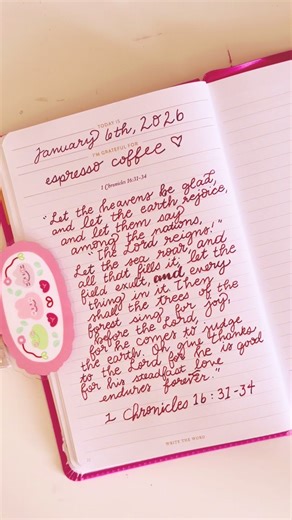 TODAY IS
january 6th, 2026
I'M GRATEFUL FOR
espresso coffee ♡
1 Chronicles 16:31-34
"Let the heavens be glad,
and let the earth rejoice,
and let them say
among the nations,
"The Lord reigns!"
Let the sea roar and
all that fills it; let the
field exult, and every
thing in it. Then
shall the trees of the
forest sing for joy,
before the Lord,
for he comes to judge
the earth. Oh give thanks
to the Lord for he is good
for his steadfast love
endures forever."
1 Chronicles 16:31-34
WRITE THE WORD